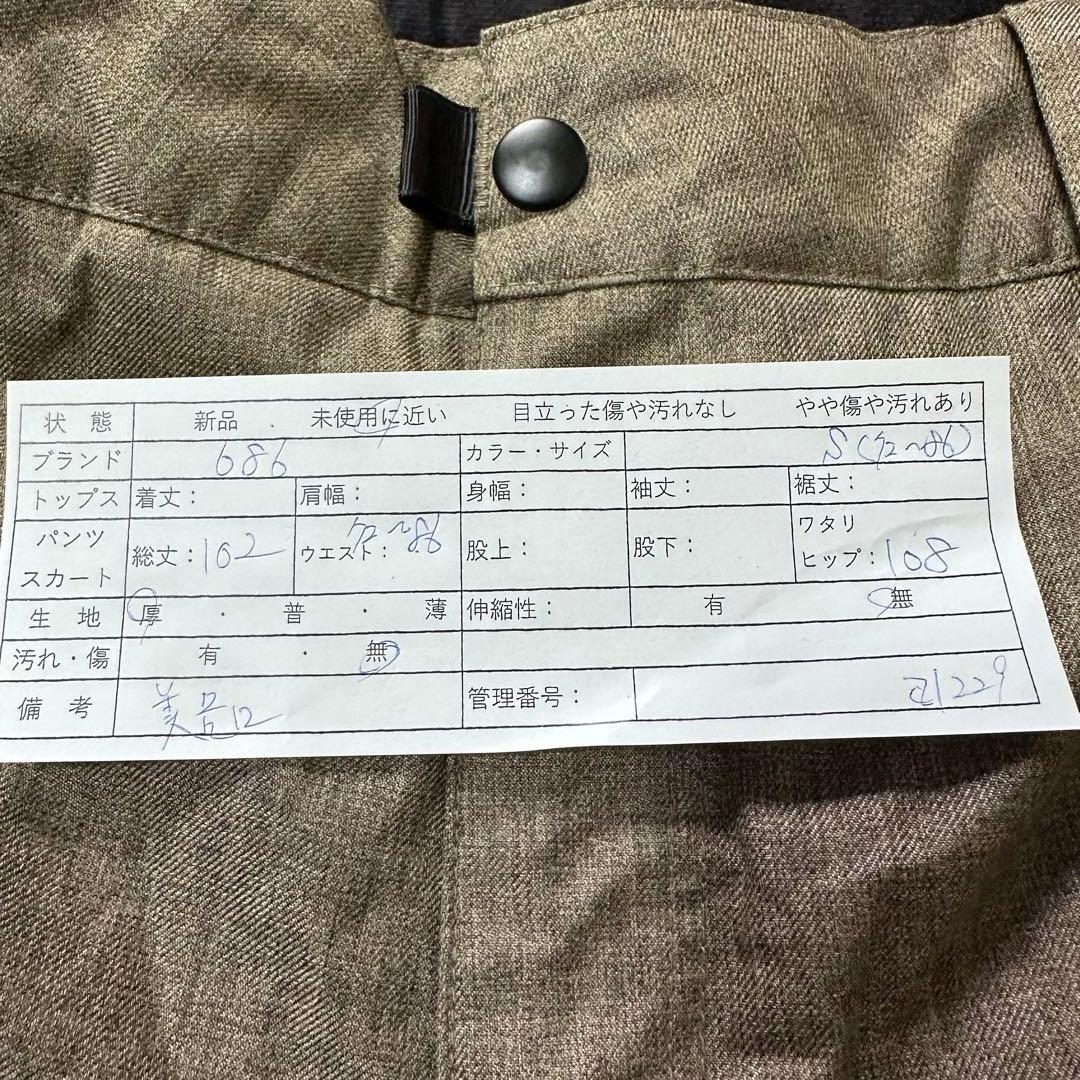 状 態 新品 . 未使用に近い 目立った傷や汚れなし やや傷や汚れあり
ブランド 686 カラー・サイズ S(72~86)
トップス 着丈: 肩幅: 身幅: 袖丈: 裾丈:
パンツ スカート 総丈:102 ウエスト:72~86 股上: 股下: ワタリ ヒップ:108
生 地 厚 ・ 普 ・ 薄 伸縮性: 有 無
汚れ・傷 有 ・ 無
備 考 美品 管理番号: Z1229